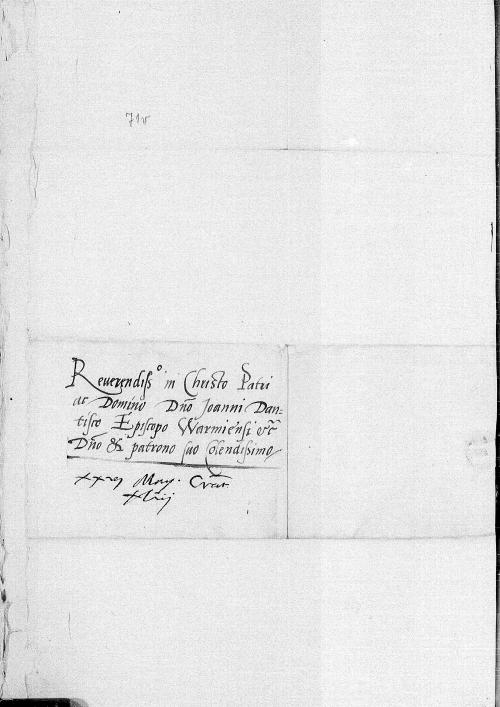 71v
Reverendiss.o in Christo Patri
ac Domino Dno Joanni Dan=
tisco Episcopo Warmiensi etc
Dno & patrono suo Colendissimo
Maij